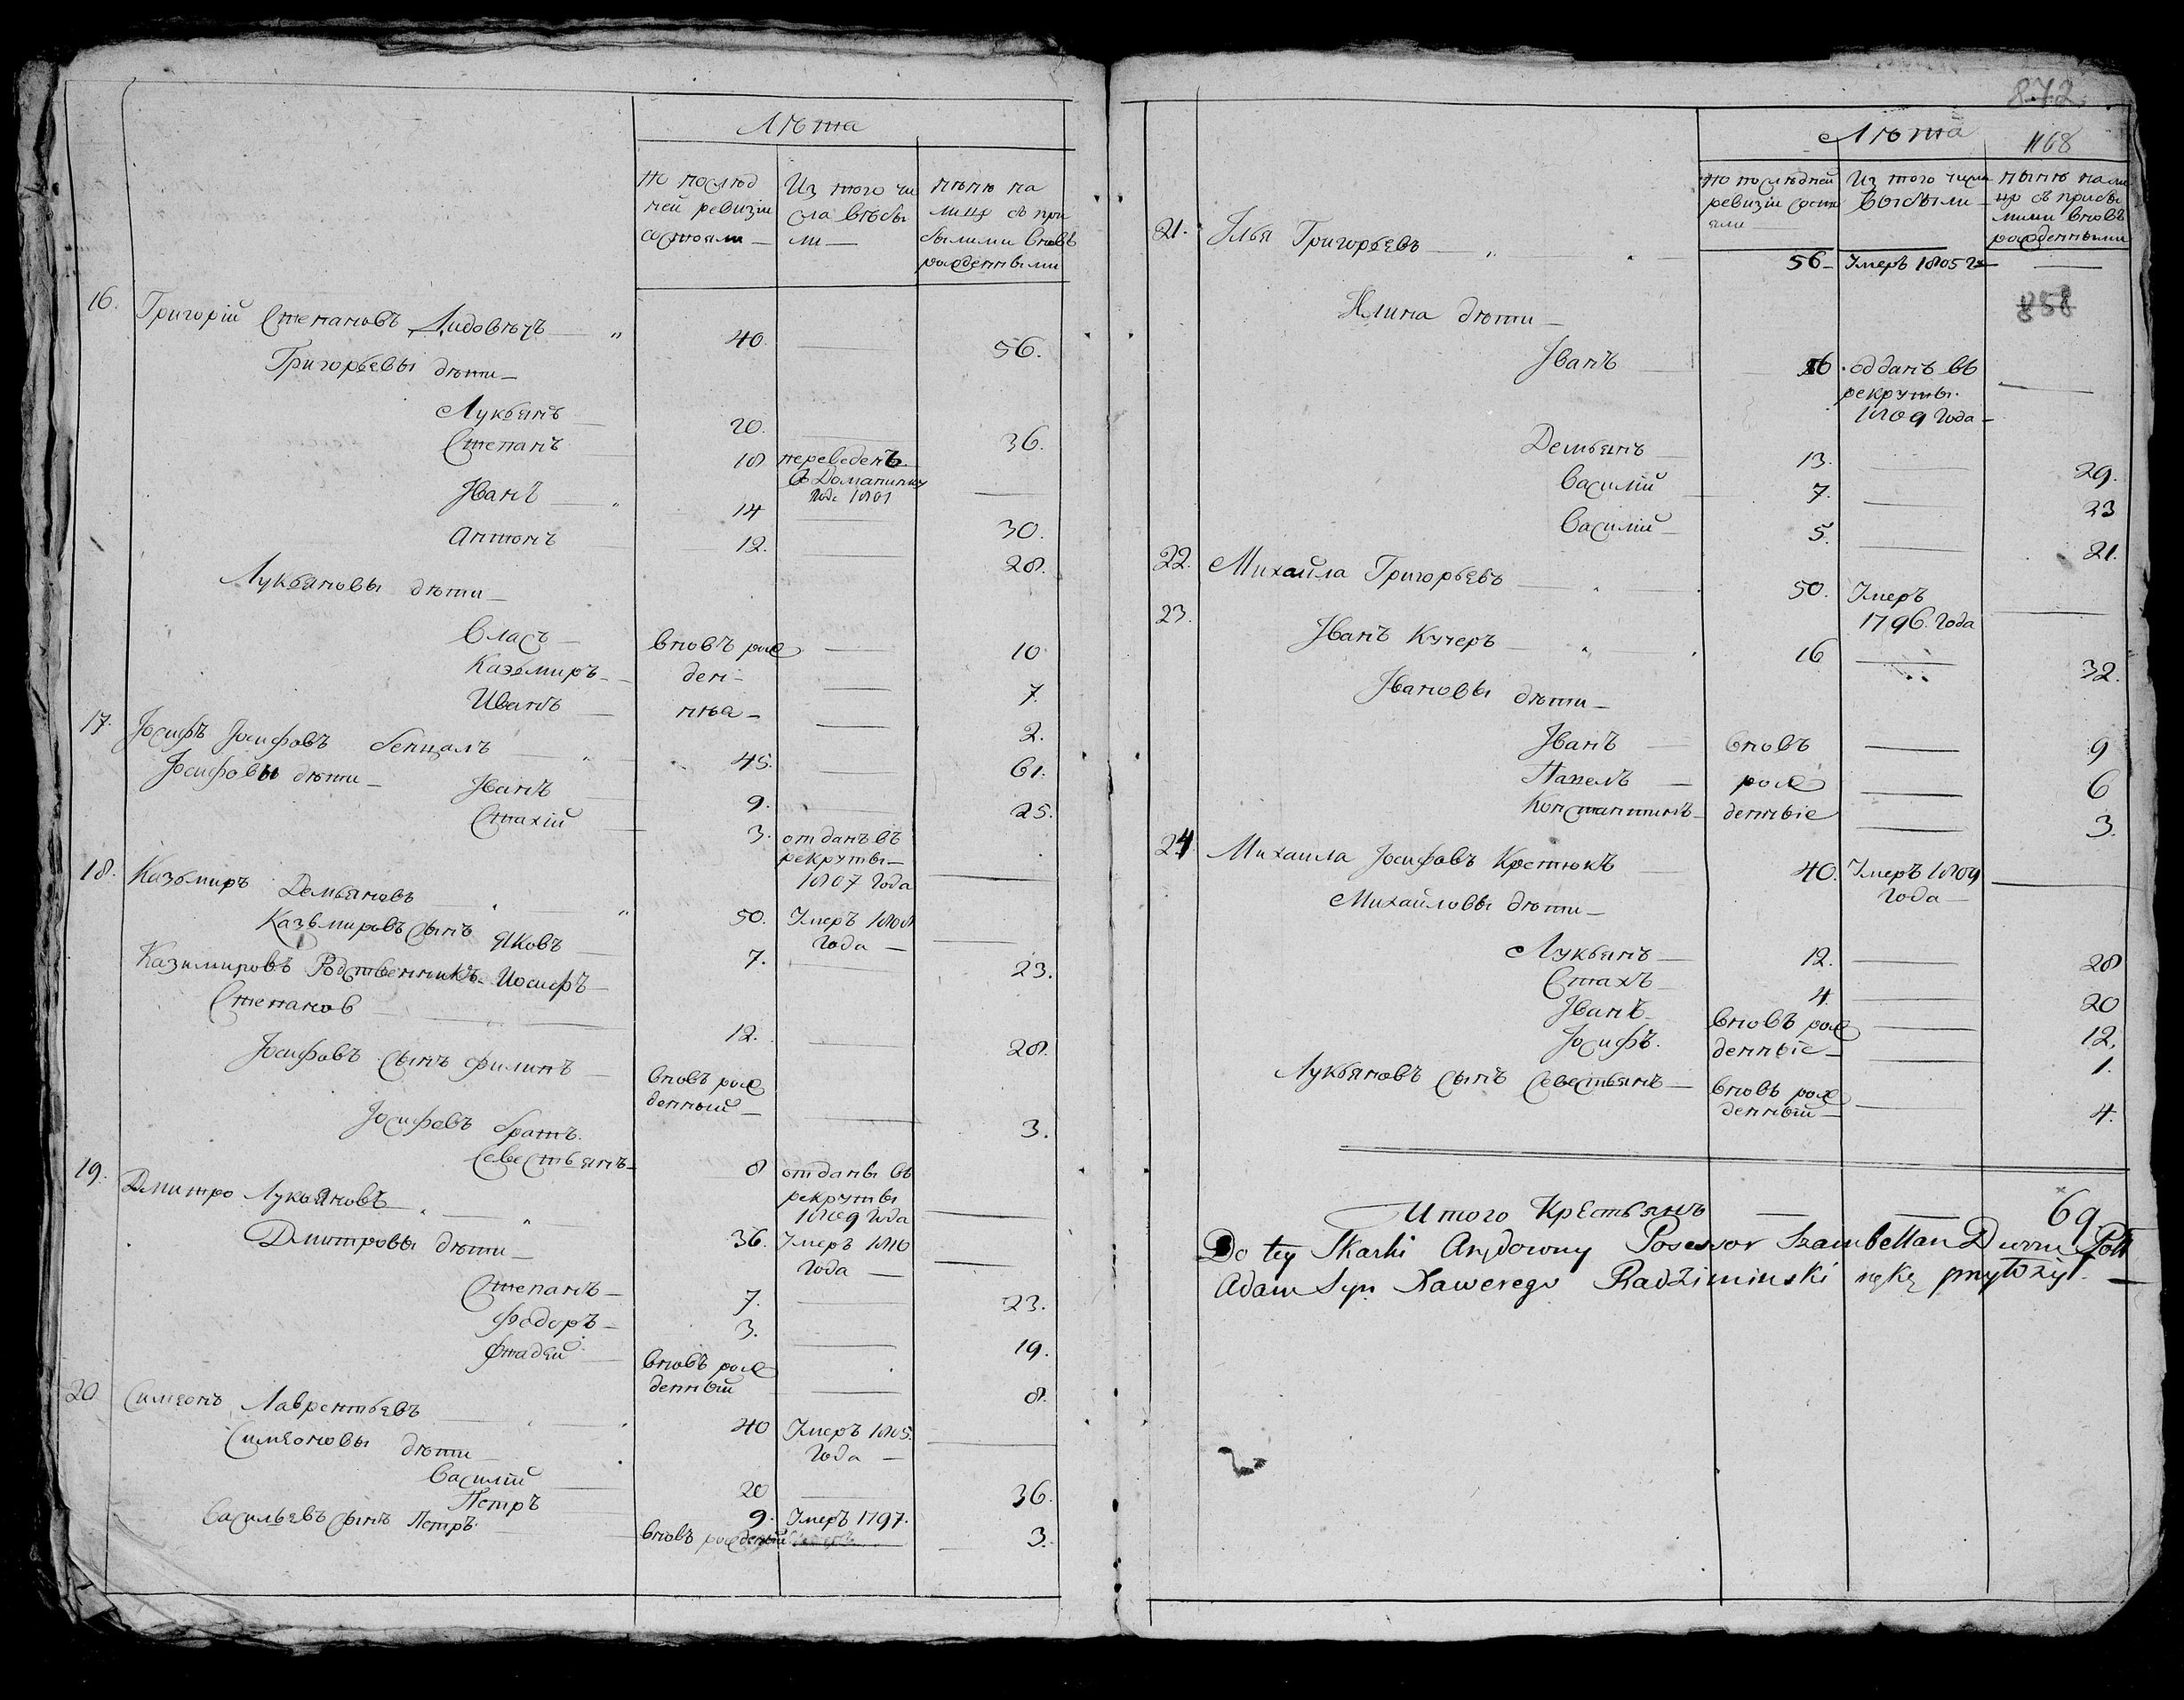 Лѣта
по послѣд
ней ревизіи
состояли —
Из того чи
сла выбы
ли —
нынѣ на
лицо съ при
былыми вновь
рожденными
16. Григорій Степановъ 40. — 56.
Григорьевы дѣти —
Лукьянъ — 20. — 36.
Степанъ 18 переведенъ
въ
года 1801 —
Іванъ — 14 — 30.
Антонъ 12. — 28.
Лукьяновы дѣти —
Власъ — вновь рож — 10
Казьмиръ — ден — 7.
Иванъ — ныя — 2.
17. Іосифъ Іосифовъ 45. — 61.
Іосифовы дѣти — Іванъ 9. — 25.
Стахій 3. отданъ въ
рекруты —
1807 года —
18. Казьмиръ Демьяновъ 50. Умеръ 1808
года — —
Казьмировъ сынъ Яковъ 7. — 23.
Казимировъ Родственникъ Иосифъ —
Степанов — 12. — 28.
Іосифовъ сынъ Филипъ — вновь рож
денный — — 3.
Іосифовъ братъ
Севестьянъ — 8 отданы въ
рекруты
1809 года —
19. Дмитро Лукьяновъ 36. Умеръ 1810
года — —
Дмитровы дѣти —
Степанъ — 7. — 23.
Федоръ — 3. — 19.
Фтадей вновь рож
денный — 8.
20 Симеонъ Лаврентьевъ 40 Умеръ 1805.
года — —
Симеоновы дѣти
Василій 20 — 36.
Петръ 9. Умеръ 1797.
Васильевъ сынъ Петръ вновь рожденый — 3.
872.
Лѣта 1168
по послѣдней
ревизіи состо
яли
Из того числа
выбыли —
нынѣ нали
цо съ прибы
лыми вновь
рожденными
21. Ілья Григорьевъ 56 — Умеръ 1805 го —
858
Илина дѣти —
Іванъ 16 отданъ въ
рекруты.
1809 года — —
Демьянъ — 13. — 29.
Василій 7. — 23
Василій — 5. — 21.
22. Михайла Григорьевъ 50. Умеръ
1796 года —
23. Іванъ Кучеръ 16 — 32.
Івановы дѣти —
Іванъ вновь — 9
Павелъ — рож — 6
Константинъ — денные — 3.
24 Михаила Іосифовъ Костюкъ 40. Умеръ 1809
года — —
Михайловы дѣти —
Лукьянъ — 12. — 28
Стахъ 4. — 20
Іванъ вновь рож — 12.
Іосифъ. денные — — 1.
Лукьяновъ сынъ Севестьянъ — вновь рож
денный — — 4.
Итого Крестьянъ — — 69.
Do tey Skaski Posessor Szambellan Dworu Pol
Adam Syn Xawerego Radzimiński rękę przyłożył. —